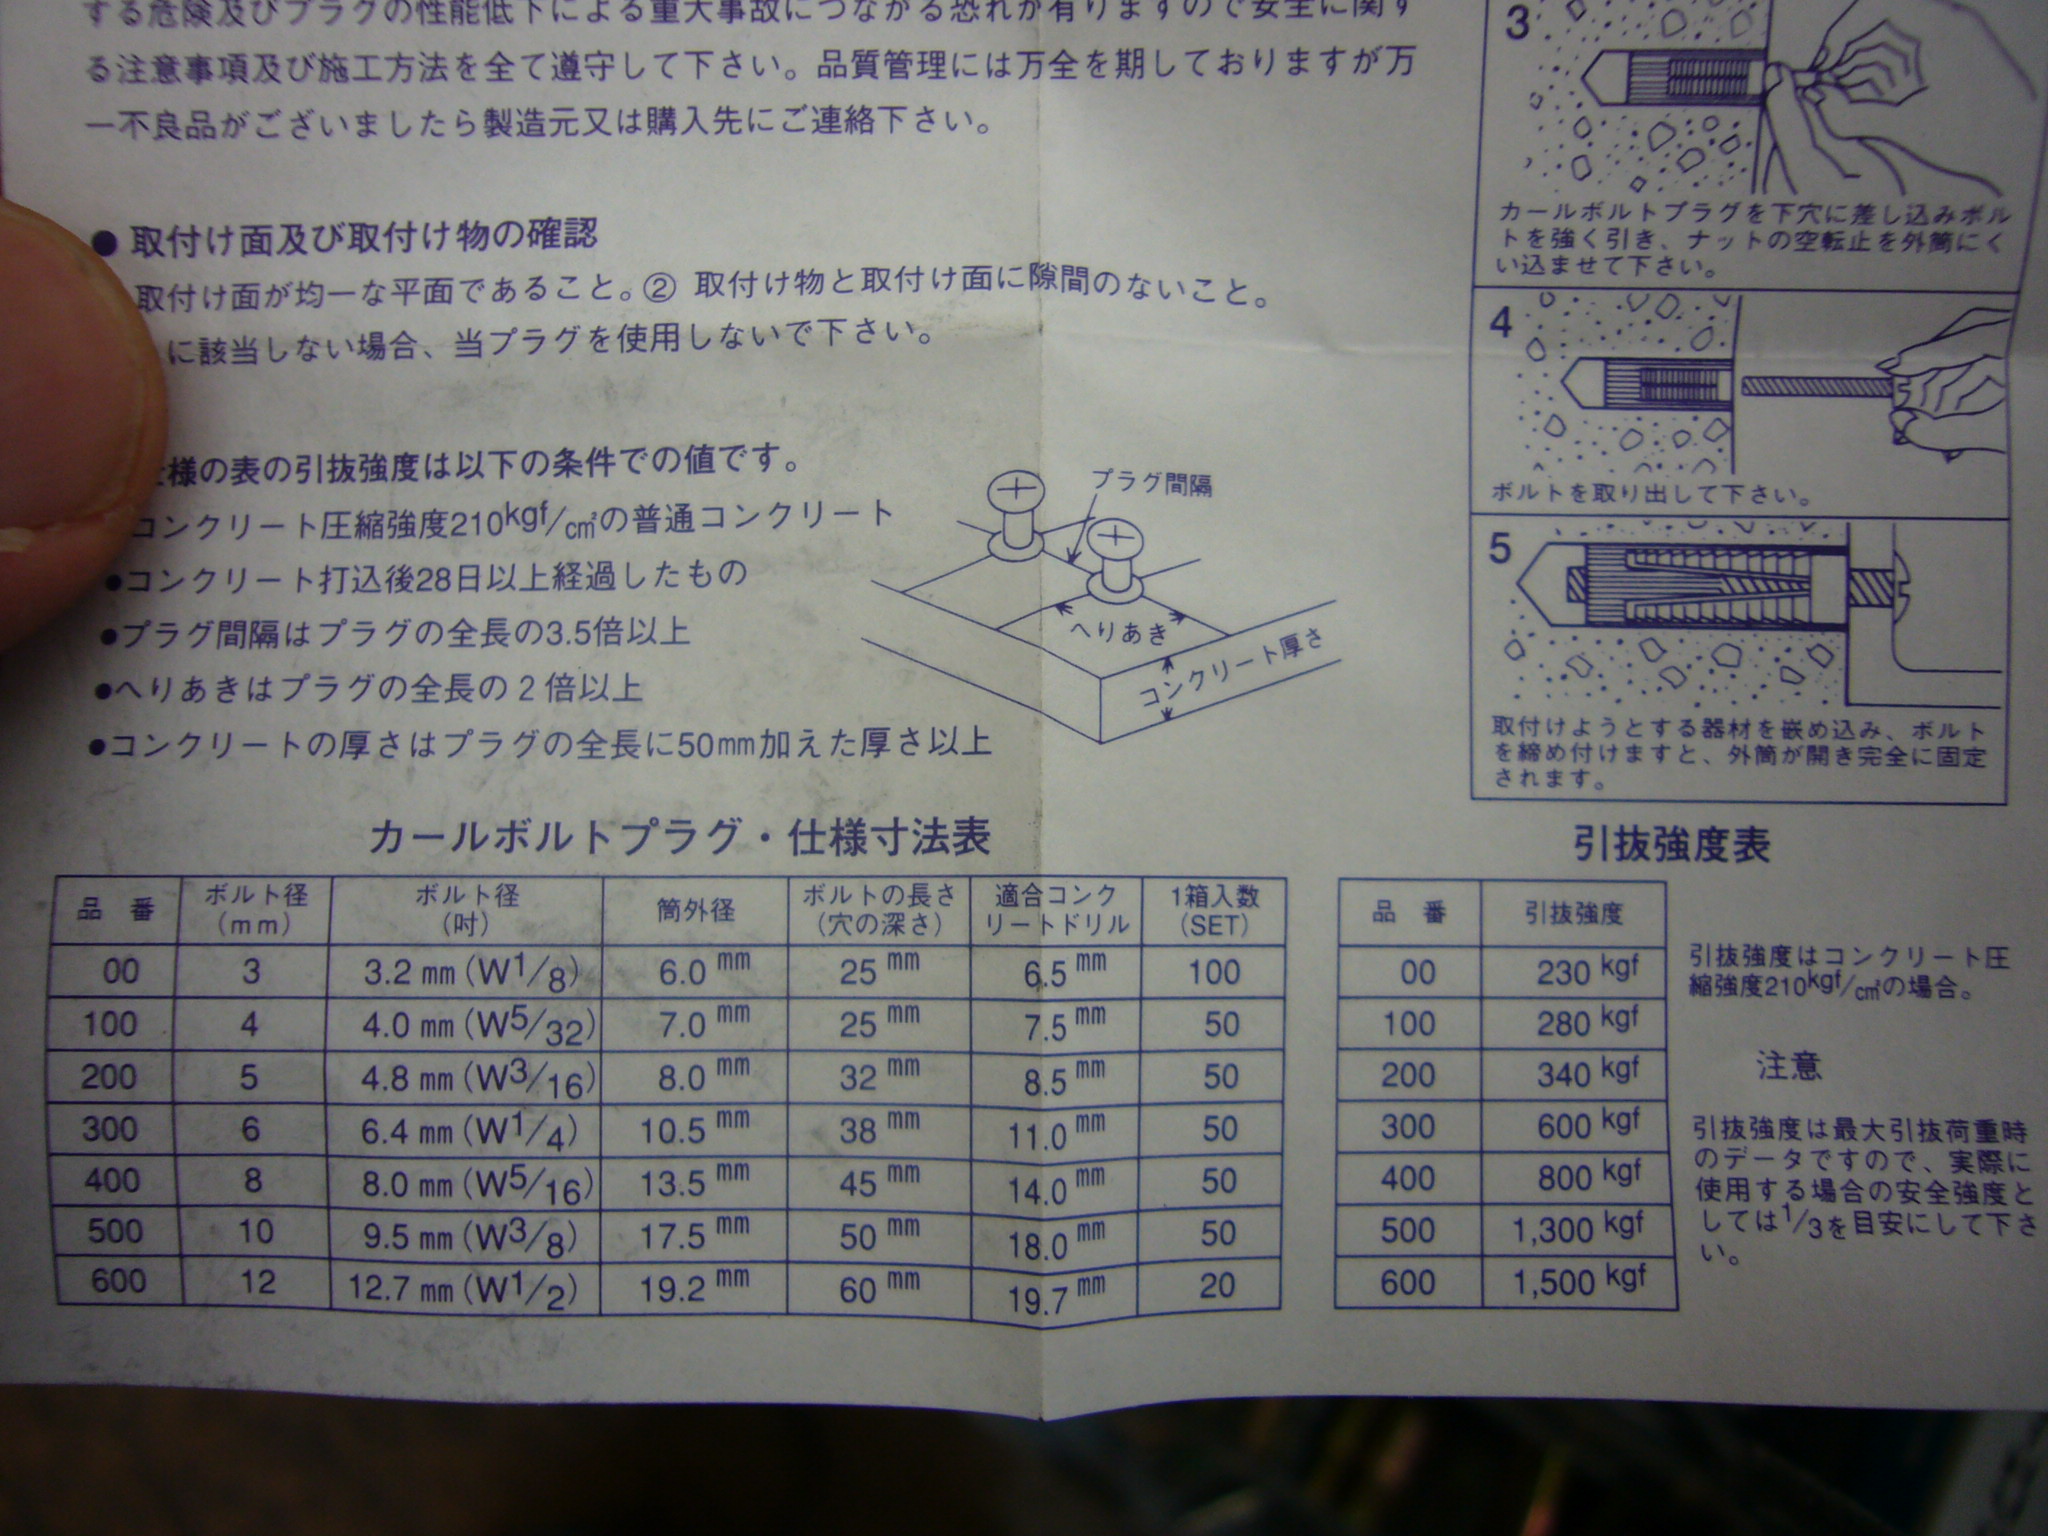 する危険及びプラグの性能低下による重大事故につながる恐れが有りますので安全に関す
る注意事項及び施工方法を全て遵守して下さい。品質管理には万全を期しておりますが万
一不良品がございましたら製造元又は購入先にご連絡下さい。
● 取付け面及び取付け物の確認
取付け面が均一な平面であること。② 取付け物と取付け面に隙間のないこと。
に該当しない場合、当プラグを使用しないで下さい。
仕様の表の引抜強度は以下の条件での値です。
コンクリート圧縮強度210kgf/c㎡の普通コンクリート
●コンクリート打込後28日以上経過したもの
●プラグ間隔はプラグの全長の3.5倍以上
●へりあきはプラグの全長の2倍以上
●コンクリートの厚さはプラグの全長に50mm加えた厚さ以上
プラグ間隔
へりあき
コンクリート厚さ
3
カールボルトプラグを下穴に差し込みボル
トを強く引き、ナットの空転止を外筒にく
い込ませて下さい。
4
ボルトを取り出して下さい。
5
取付けようとする器材を嵌め込み、ボルト
を締め付けますと、外筒が開き完全に固定
されます。
カールボルトプラグ・仕様寸法表
品 番 ボルト径(mm) ボルト径(吋) 筒外径 ボルトの長さ(穴の深さ) 適合コンクリートドリル 1箱入数(SET)
00 3 3.2 mm (W1/8) 6.0 mm 25 mm 6.5 mm 100
100 4 4.0 mm (W5/32) 7.0 mm 25 mm 7.5 mm 50
200 5 4.8 mm (W3/16) 8.0 mm 32 mm 8.5 mm 50
300 6 6.4 mm (W1/4) 10.5 mm 38 mm 11.0 mm 50
400 8 8.0 mm (W5/16) 13.5 mm 45 mm 14.0 mm 50
500 10 9.5 mm (W3/8) 17.5 mm 50 mm 18.0 mm 50
600 12 12.7 mm (W1/2) 19.2 mm 60 mm 19.7 mm 20
引抜強度表
品 番 引抜強度
00 230 kgf
100 280 kgf
200 340 kgf
300 600 kgf
400 800 kgf
500 1,300 kgf
600 1,500 kgf
引抜強度はコンクリート圧
縮強度210kgf/c㎡の場合。
注意
引抜強度は最大引抜荷重時
のデータですので、実際に
使用する場合の安全強度と
しては1/3を目安にして下さ
い。